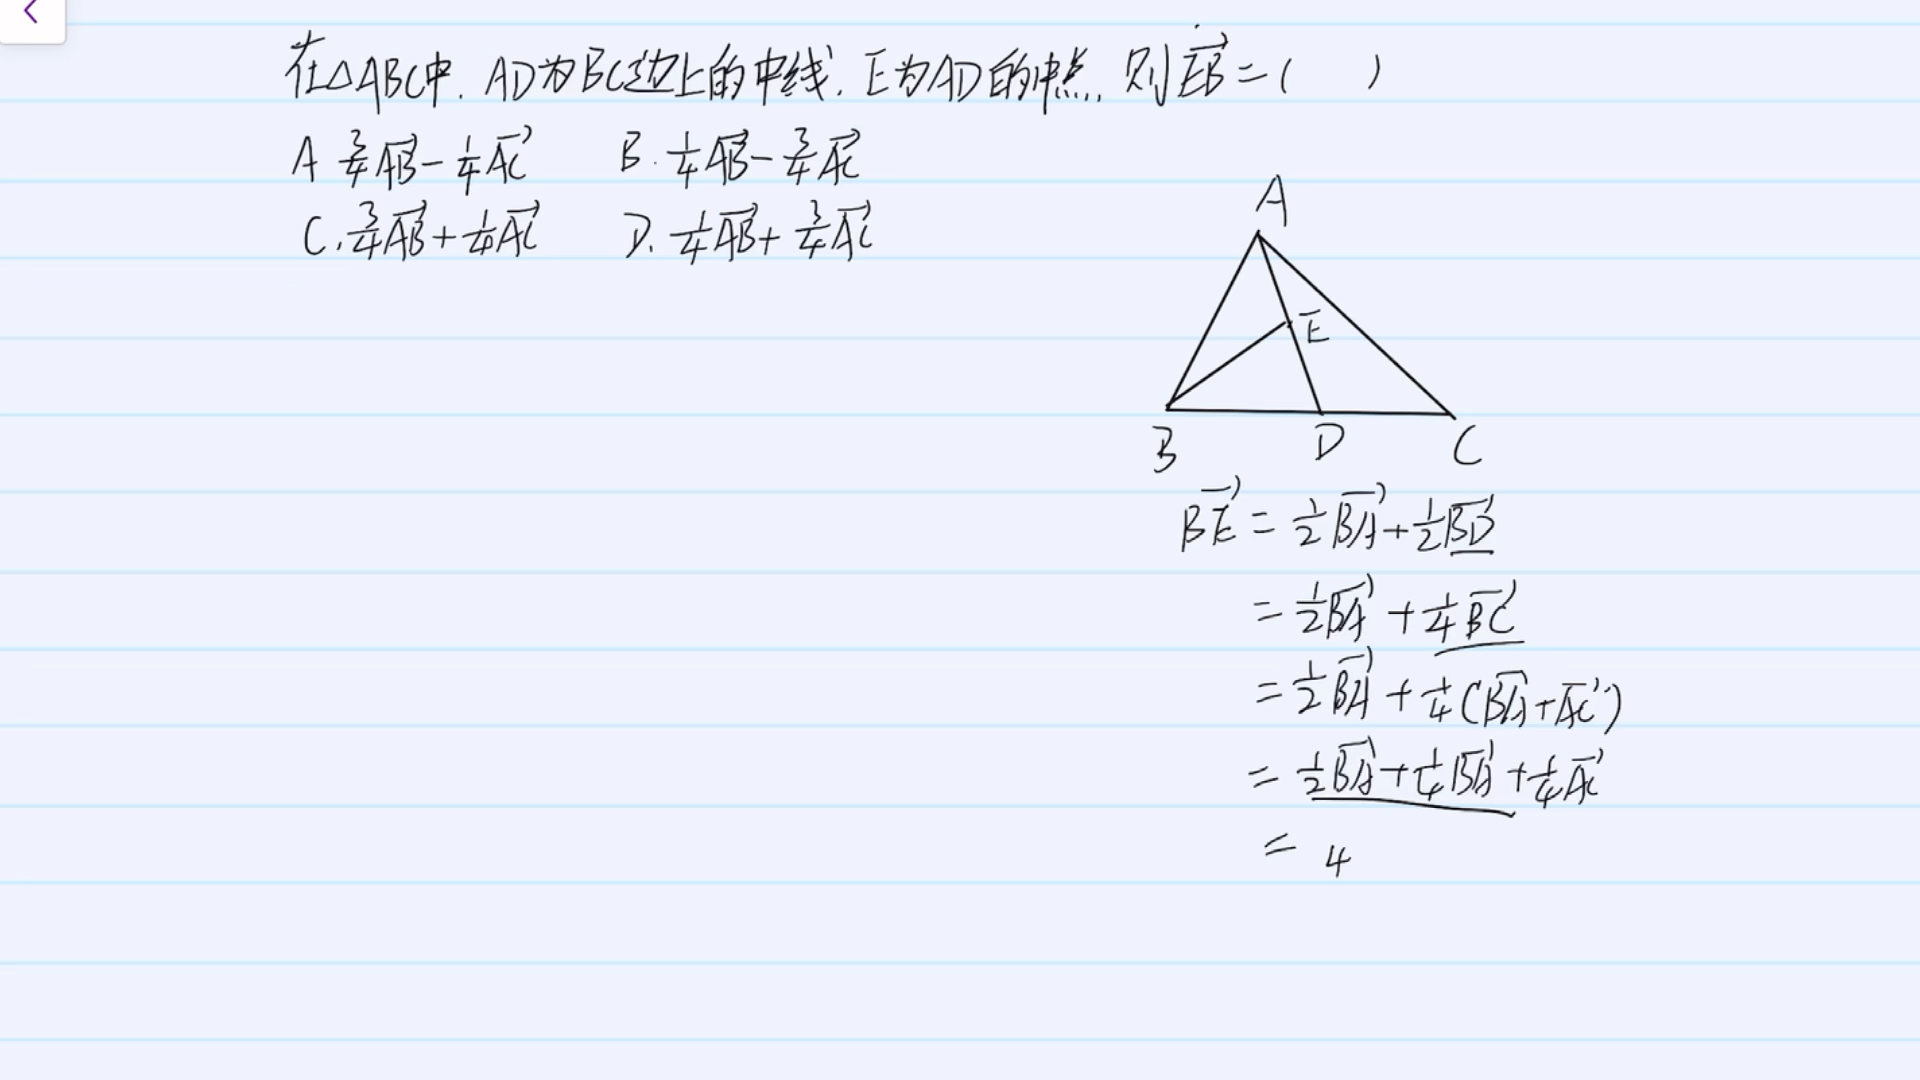 在△ABC中. AD为BC边上的中线. E为AD的中点. 则 $\overrightarrow{EB}$ = ( )
A $\frac{3}{4}\overrightarrow{AB}-\frac{1}{4}\overrightarrow{AC}$ B. $\frac{1}{4}\overrightarrow{AB}-\frac{3}{4}\overrightarrow{AC}$
C. $\frac{3}{4}\overrightarrow{AB}+\frac{1}{4}\overrightarrow{AC}$ D. $\frac{1}{4}\overrightarrow{AB}+\frac{3}{4}\overrightarrow{AC}$
A
E
B D C
$\overrightarrow{BE}=\frac{1}{2}\overrightarrow{BA}+\frac{1}{2}\overrightarrow{BD}$
$=\frac{1}{2}\overrightarrow{BA}+\frac{1}{4}\overrightarrow{BC}$
$=\frac{1}{2}\overrightarrow{BA}+\frac{1}{4}(\overrightarrow{BA}+\overrightarrow{AC})$
$=\frac{1}{2}\overrightarrow{BA}+\frac{1}{4}\overrightarrow{BA}+\frac{1}{4}\overrightarrow{AC}$
= 4